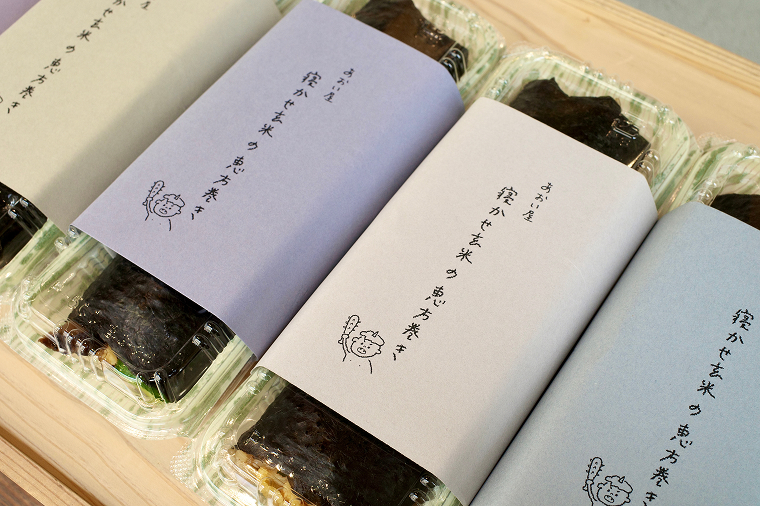 かせ玄米の恵方巻き
あおい屋
寝かせ玄米の恵方巻き
あおい屋
寝かせ玄米の恵方巻き
寝かせ玄米の恵方巻き